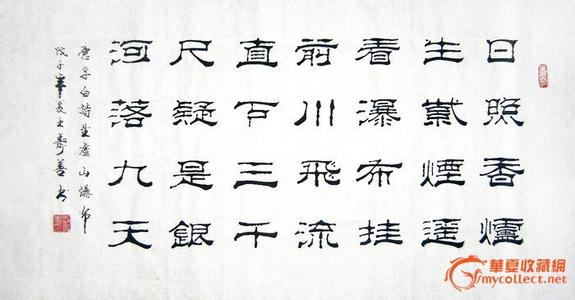 日照香爐
生紫煙遥
看瀑布挂
前川飛流
直下三千
尺疑是銀
河落九天
唐李白詩望廬山瀑布
戊子年夏 壽善書
華夏收藏網
mycollect.net